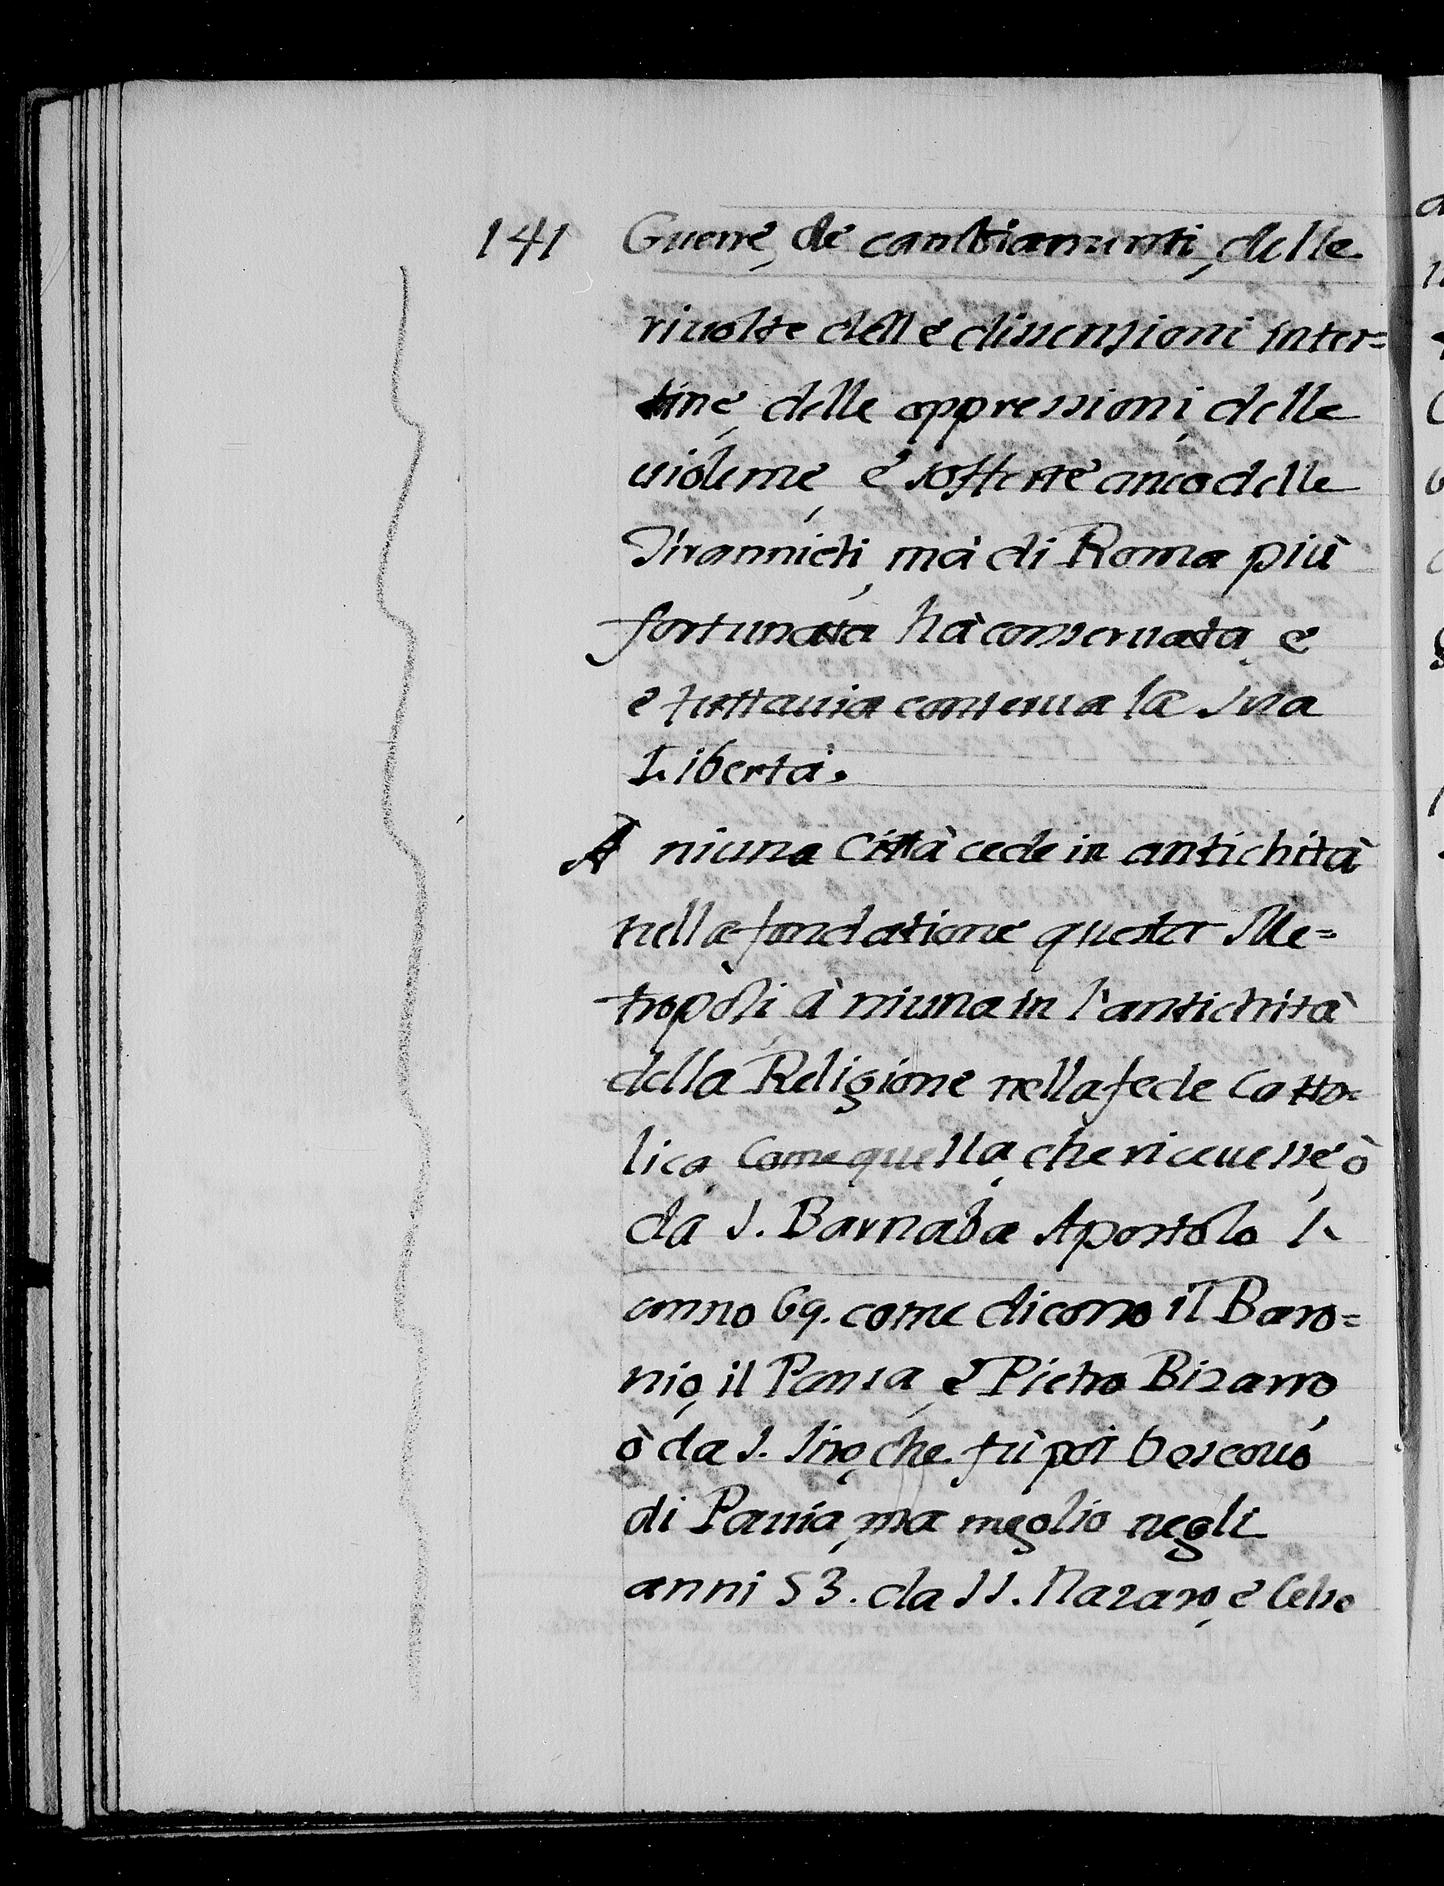 141 Guerre, de cambiamenti, delle
riuolte delle dissensioni inter=
tine, delle oppressioni, delle
uiolenze, e' sofferte anco delle
Tirannidi, mà di Roma più
fortunata hà conseruata, e
e tuttauia conserua la sua
Libertà.
A niuna Città cede in antichità
nella fondatione questa Me=
tropoli à niuna in l'antichità
della Religione nella fede Catto-
lica, Come quella, che riceuesse, ò
da S. Barnaba Apostolo l'
anno 69. come dicono il Baro=
nio, il Pansa, e Pietro Bizarro,
ò da S. Siro, che fù poi Vescouo
di Pauia, ma meglio negli
anni 53. da SS. Nazaro, e Celso